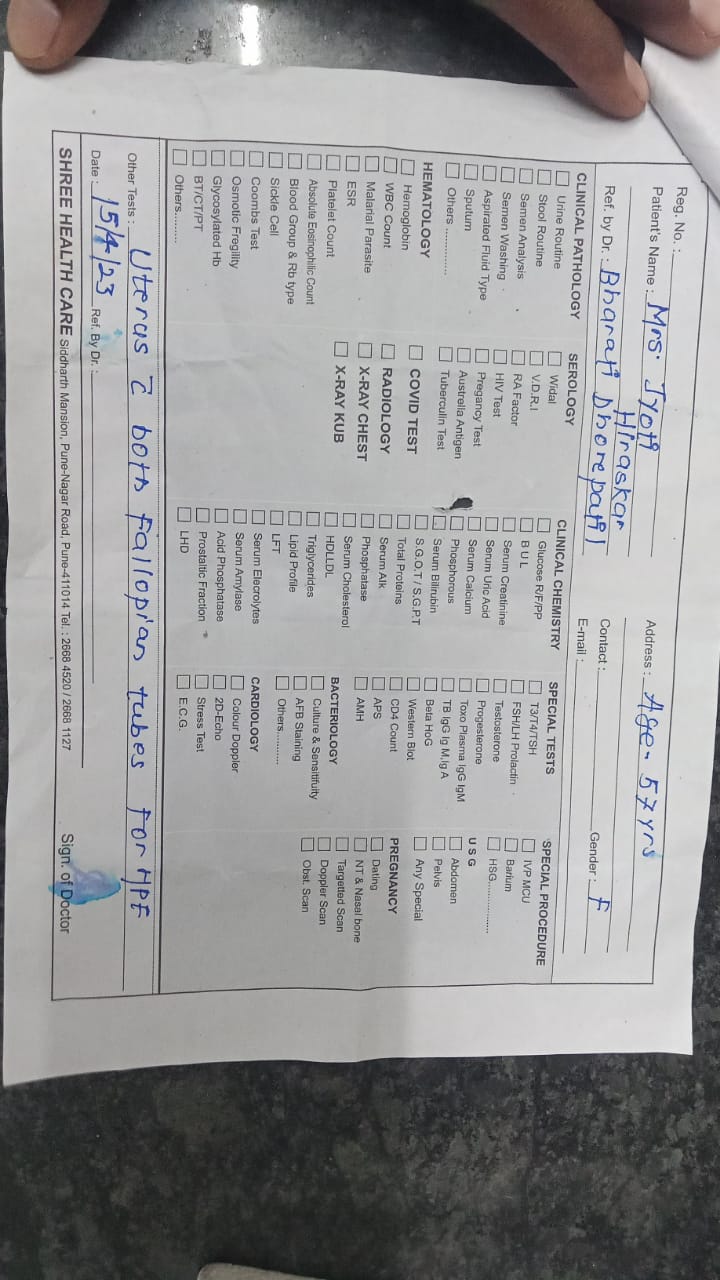 Reg. No. :
Patient's Name : Mrs. Jyoti Hiraskar
Address : Age - 57 yrs
Ref. by Dr. : Bharati Dhorepatil
Contact :
Gender : F
E-mail :
CLINICAL PATHOLOGY
Urine Routine
Stool Routine
Semen Analysis
Semen Washing
Aspirated Fluid Type
Sputum
Others ...............
HEMATOLOGY
Hemoglobin
WBC Count
Malarial Parasite
ESR
Platelet Count
Absolute Eosinophilic Count
Blood Group & Rb type
Sickle Cell
Coombs Test
Osmotic Fregility
Glycosylated Hb
BT/CT/PT
Others..........
SEROLOGY
Widal
V.D.R.I
RA Factor
HIV Test
Pregancy Test
Australia Antigen
Tuberculin Test
COVID TEST
RADIOLOGY
X-RAY CHEST
X-RAY KUB
CLINICAL CHEMISTRY
Glucose R/F/PP
B U L
Serum Creatinine
Serum Uric Acid
Serum Calcium
Phosphorous
Serum Bilirubin
S.G.O.T / S.G.P.T
Total Proteins
Serum Alk
Phosphatase
Serum Cholesterol
HDL/LDL
Triglycerides
Lipid Profile
LFT
Serum Elecrolytes
Serum Amylase
Acid Phosphatase
Prostaltic Fraction
LHD
SPECIAL TESTS
T3/T4/TSH
FSH/LH Prolactin
Testosterone
Progesterone
Toxo Plasma IgG IgM
TB IgG Ig M,Ig A
Beta HoG
Western Blot
CD4 Count
APS
AMH
BACTERIOLOGY
Culture & Sensitifuity
AFB Staining
Others............
CARDIOLOGY
Colour Doppler
2D-Echo
Stress Test
E.C.G.
SPECIAL PROCEDURE
IVP MCU
Barium
HSG..................
U S G
Abdomen
Pelvis
Any Special
PREGNANCY
Dating
NT & Nasal bone
Targetted Scan
Doppler Scan
Obst. Scan
Other Tests : Uterus c̄ both fallopian tubes for HPE
Date : 15/4/23 Ref. By Dr. :
Sign. of Doctor
SHREE HEALTH CARE Siddharth Mansion, Pune-Nagar Road, Pune-411014 Tel. : 2668 4520 / 2668 1127